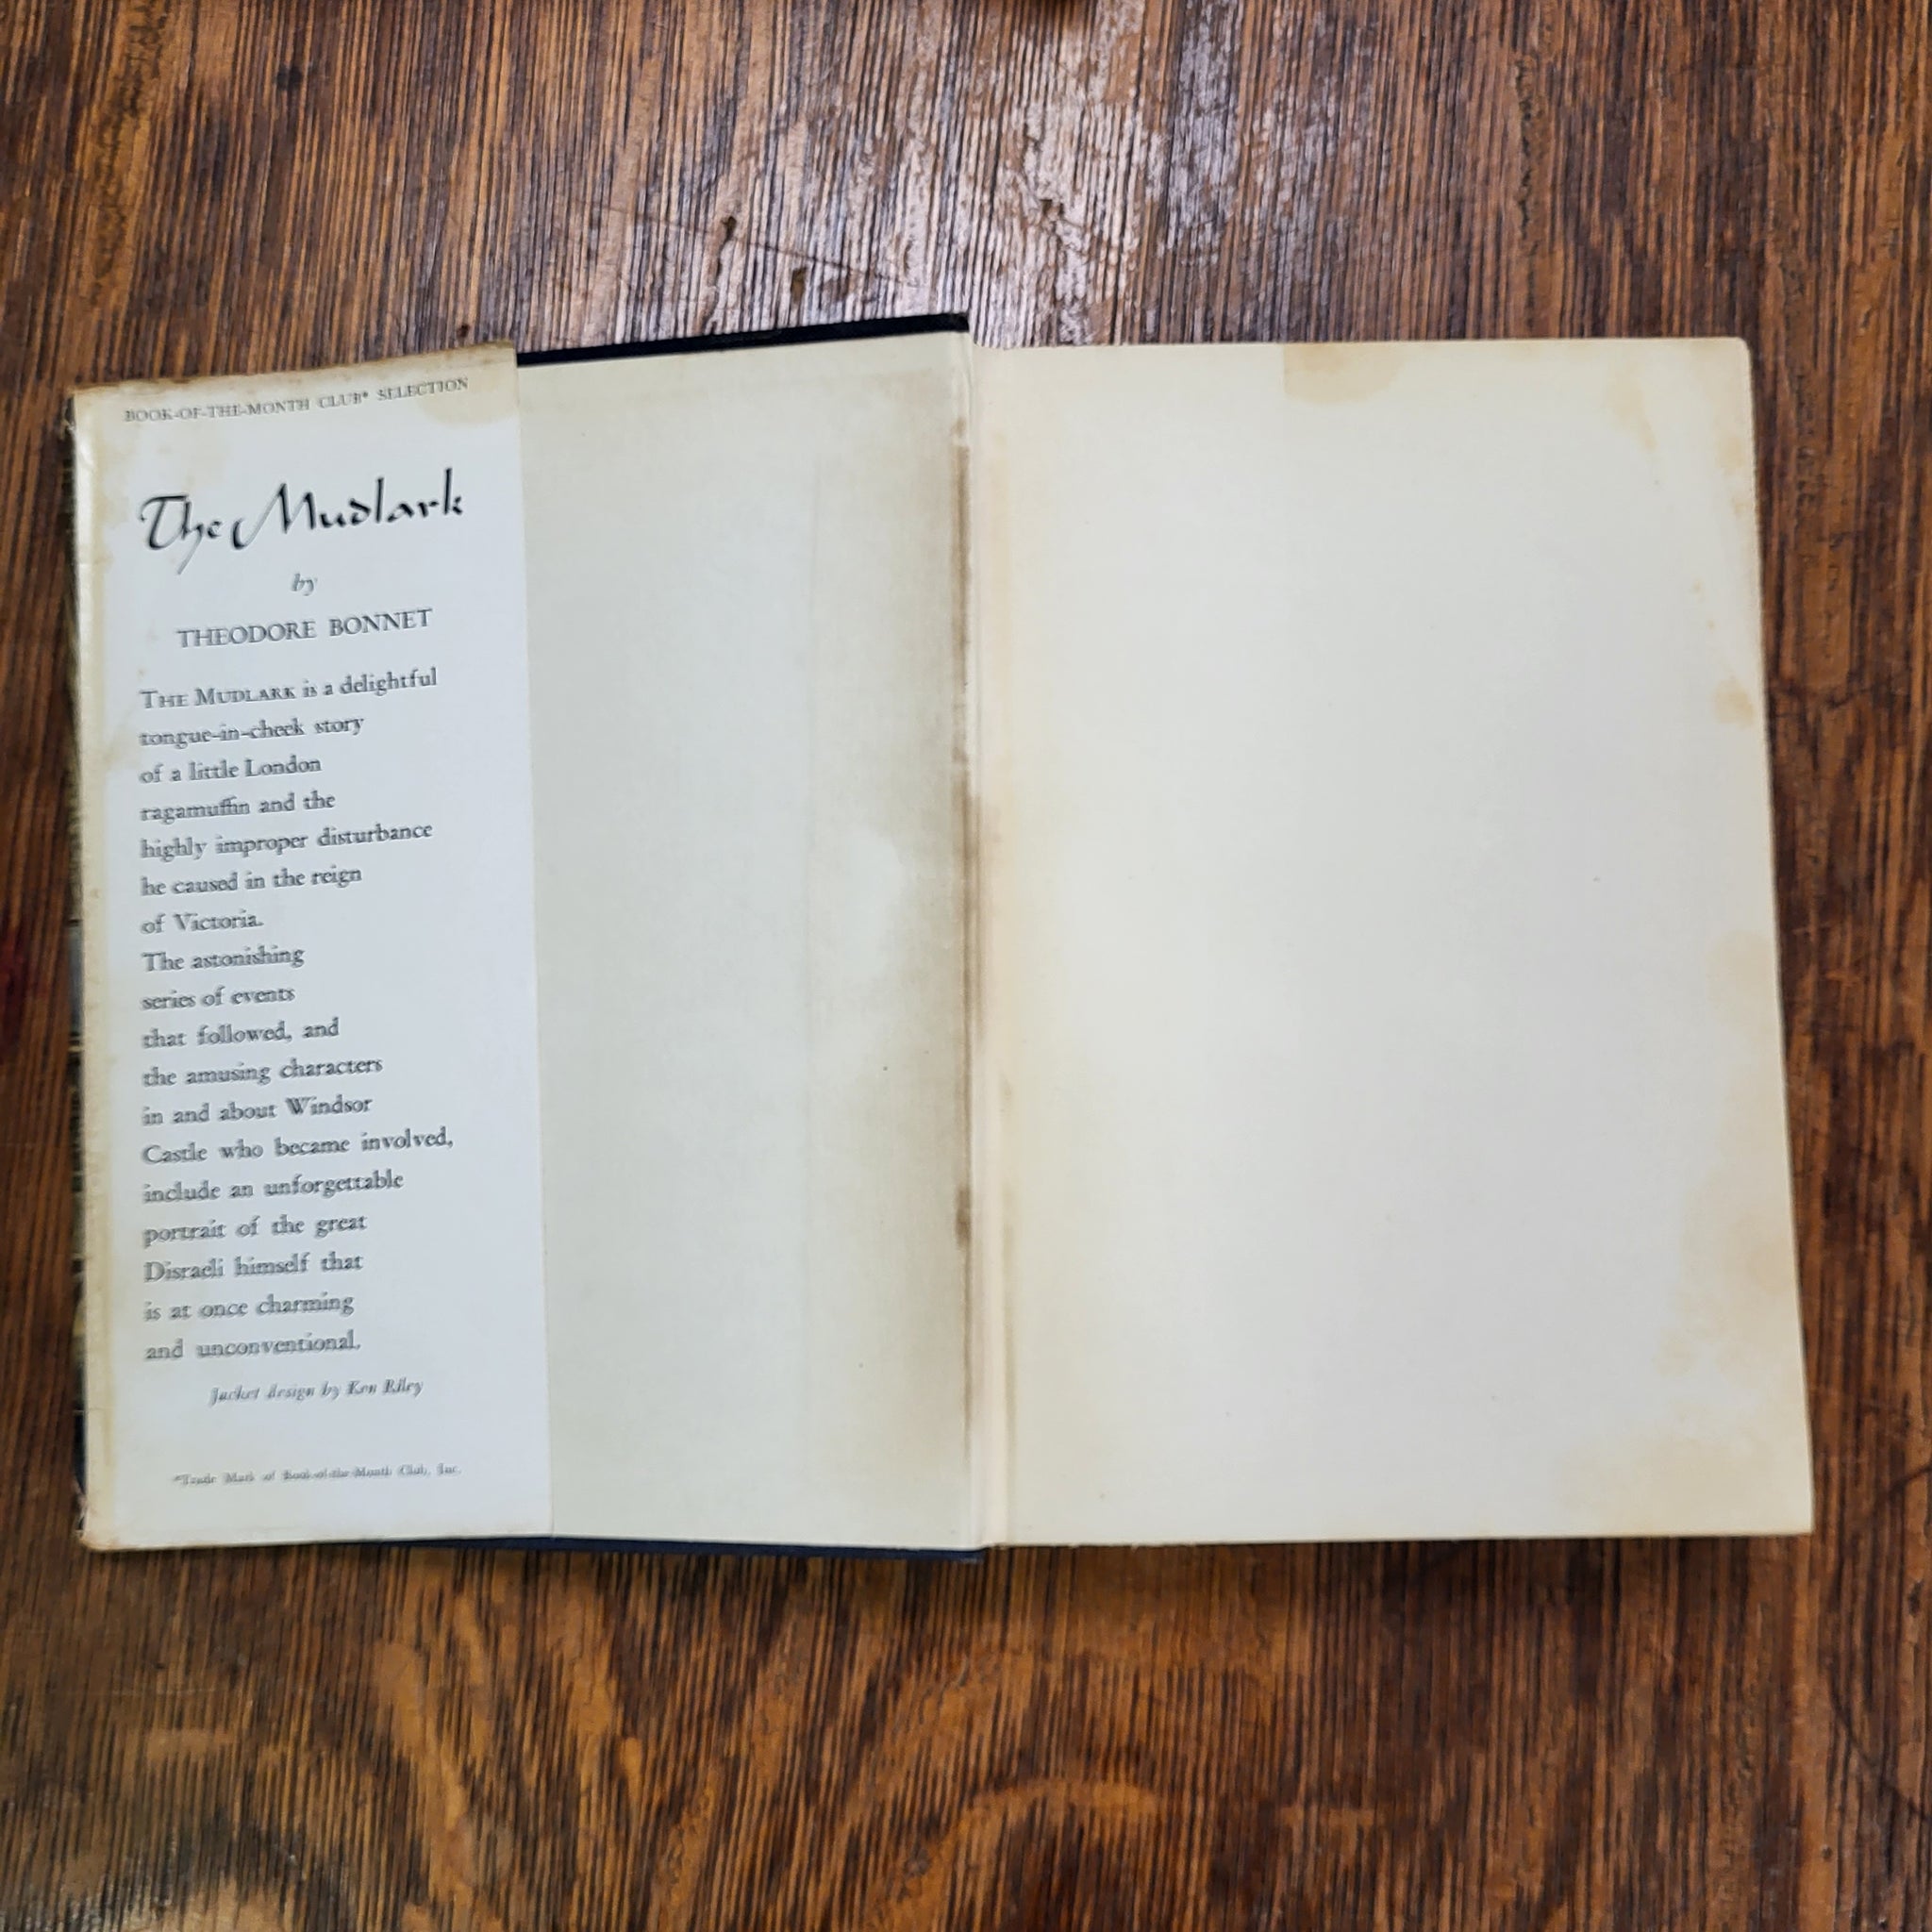 BOOK-OF-THE-MONTH CLUB* SELECTION
The Mudlark
by
THEODORE BONNET
THE MUDLARK is a delightful
tongue-in-cheek story
of a little London
ragamuffin and the
highly improper disturbance
he caused in the reign
of Victoria.
The astonishing
series of events
that followed, and
the amusing characters
in and about Windsor
Castle who became involved,
include an unforgettable
portrait of the great
Disraeli himself that
is at once charming
and unconventional.
Jacket design by Ken Riley
*Trade Mark of Book-of-the-Month Club, Inc.